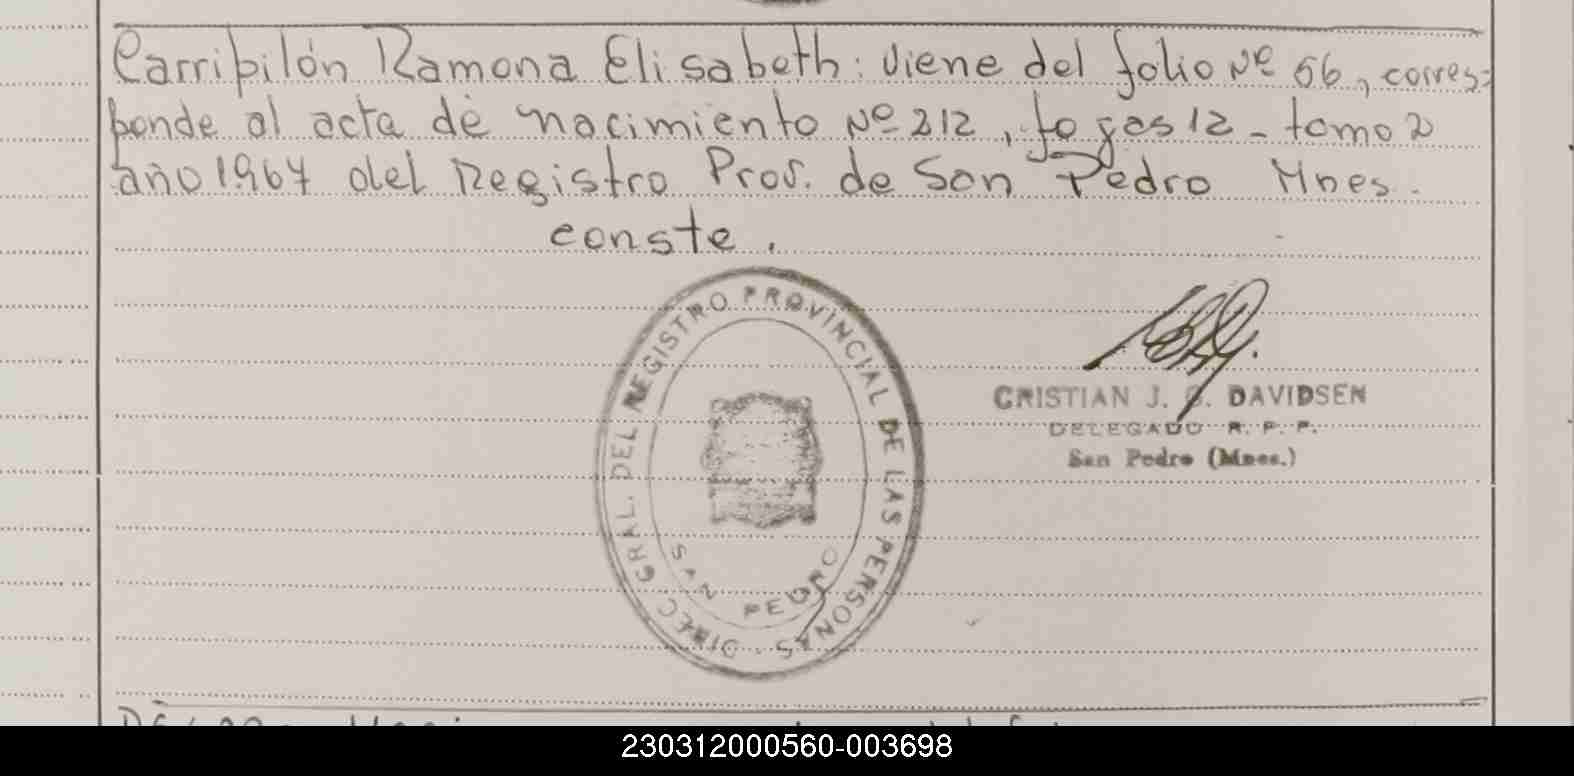 Carripilón Ramona Elisabeth: viene del folio Nº 56, corres=
ponde al acta de nacimiento Nº 212, fojas 12 - tomo 2
año 1964 del Registro Prov. de San Pedro Mnes.
conste.
DIREC GRAL. DEL REGISTRO PROVINCIAL DE LAS PERSONAS
SAN PEDRO
CRISTIAN J. G. DAVIDSEN
DELEGADO R. P. P.
San Pedro (Mnes.)
230312000560-003698